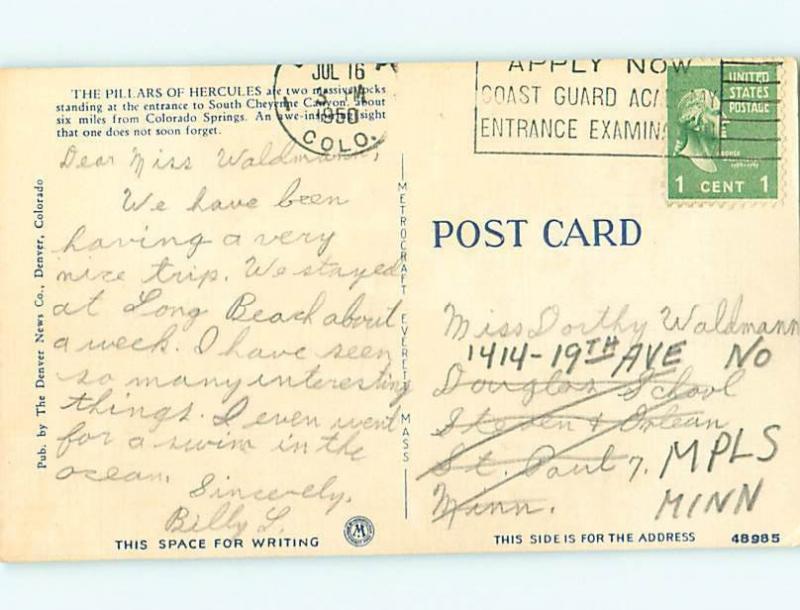 THE PILLARS OF HERCULES are two massive rocks
standing at the entrance to South Cheyenne Canyon, about
six miles from Colorado Springs. An awe-inspiring sight
that one does not soon forget.
JUL 16
1950
COLO.
APPLY NOW
COAST GUARD ACADEMY
ENTRANCE EXAMINA
UNITED
STATES
POSTAGE
1 CENT 1
Dear Miss Waldmann,
We have been
having a very
nice trip. We stayed
at Long Beach about
a week. I have seen
so many interesting
things. I even went
for a swim in the
ocean.
Sincerely,
Billy L.
Pub. by The Denver News Co., Denver, Colorado
METROCRAFT EVERETT MASS
POST CARD
Miss Dorthy Waldmann
1414-19TH AVE NO
Douglas School
Steven & Orlean
St. Paul 7, MPLS
Minn. MINN
THIS SPACE FOR WRITING
M
THIS SIDE IS FOR THE ADDRESS
48985